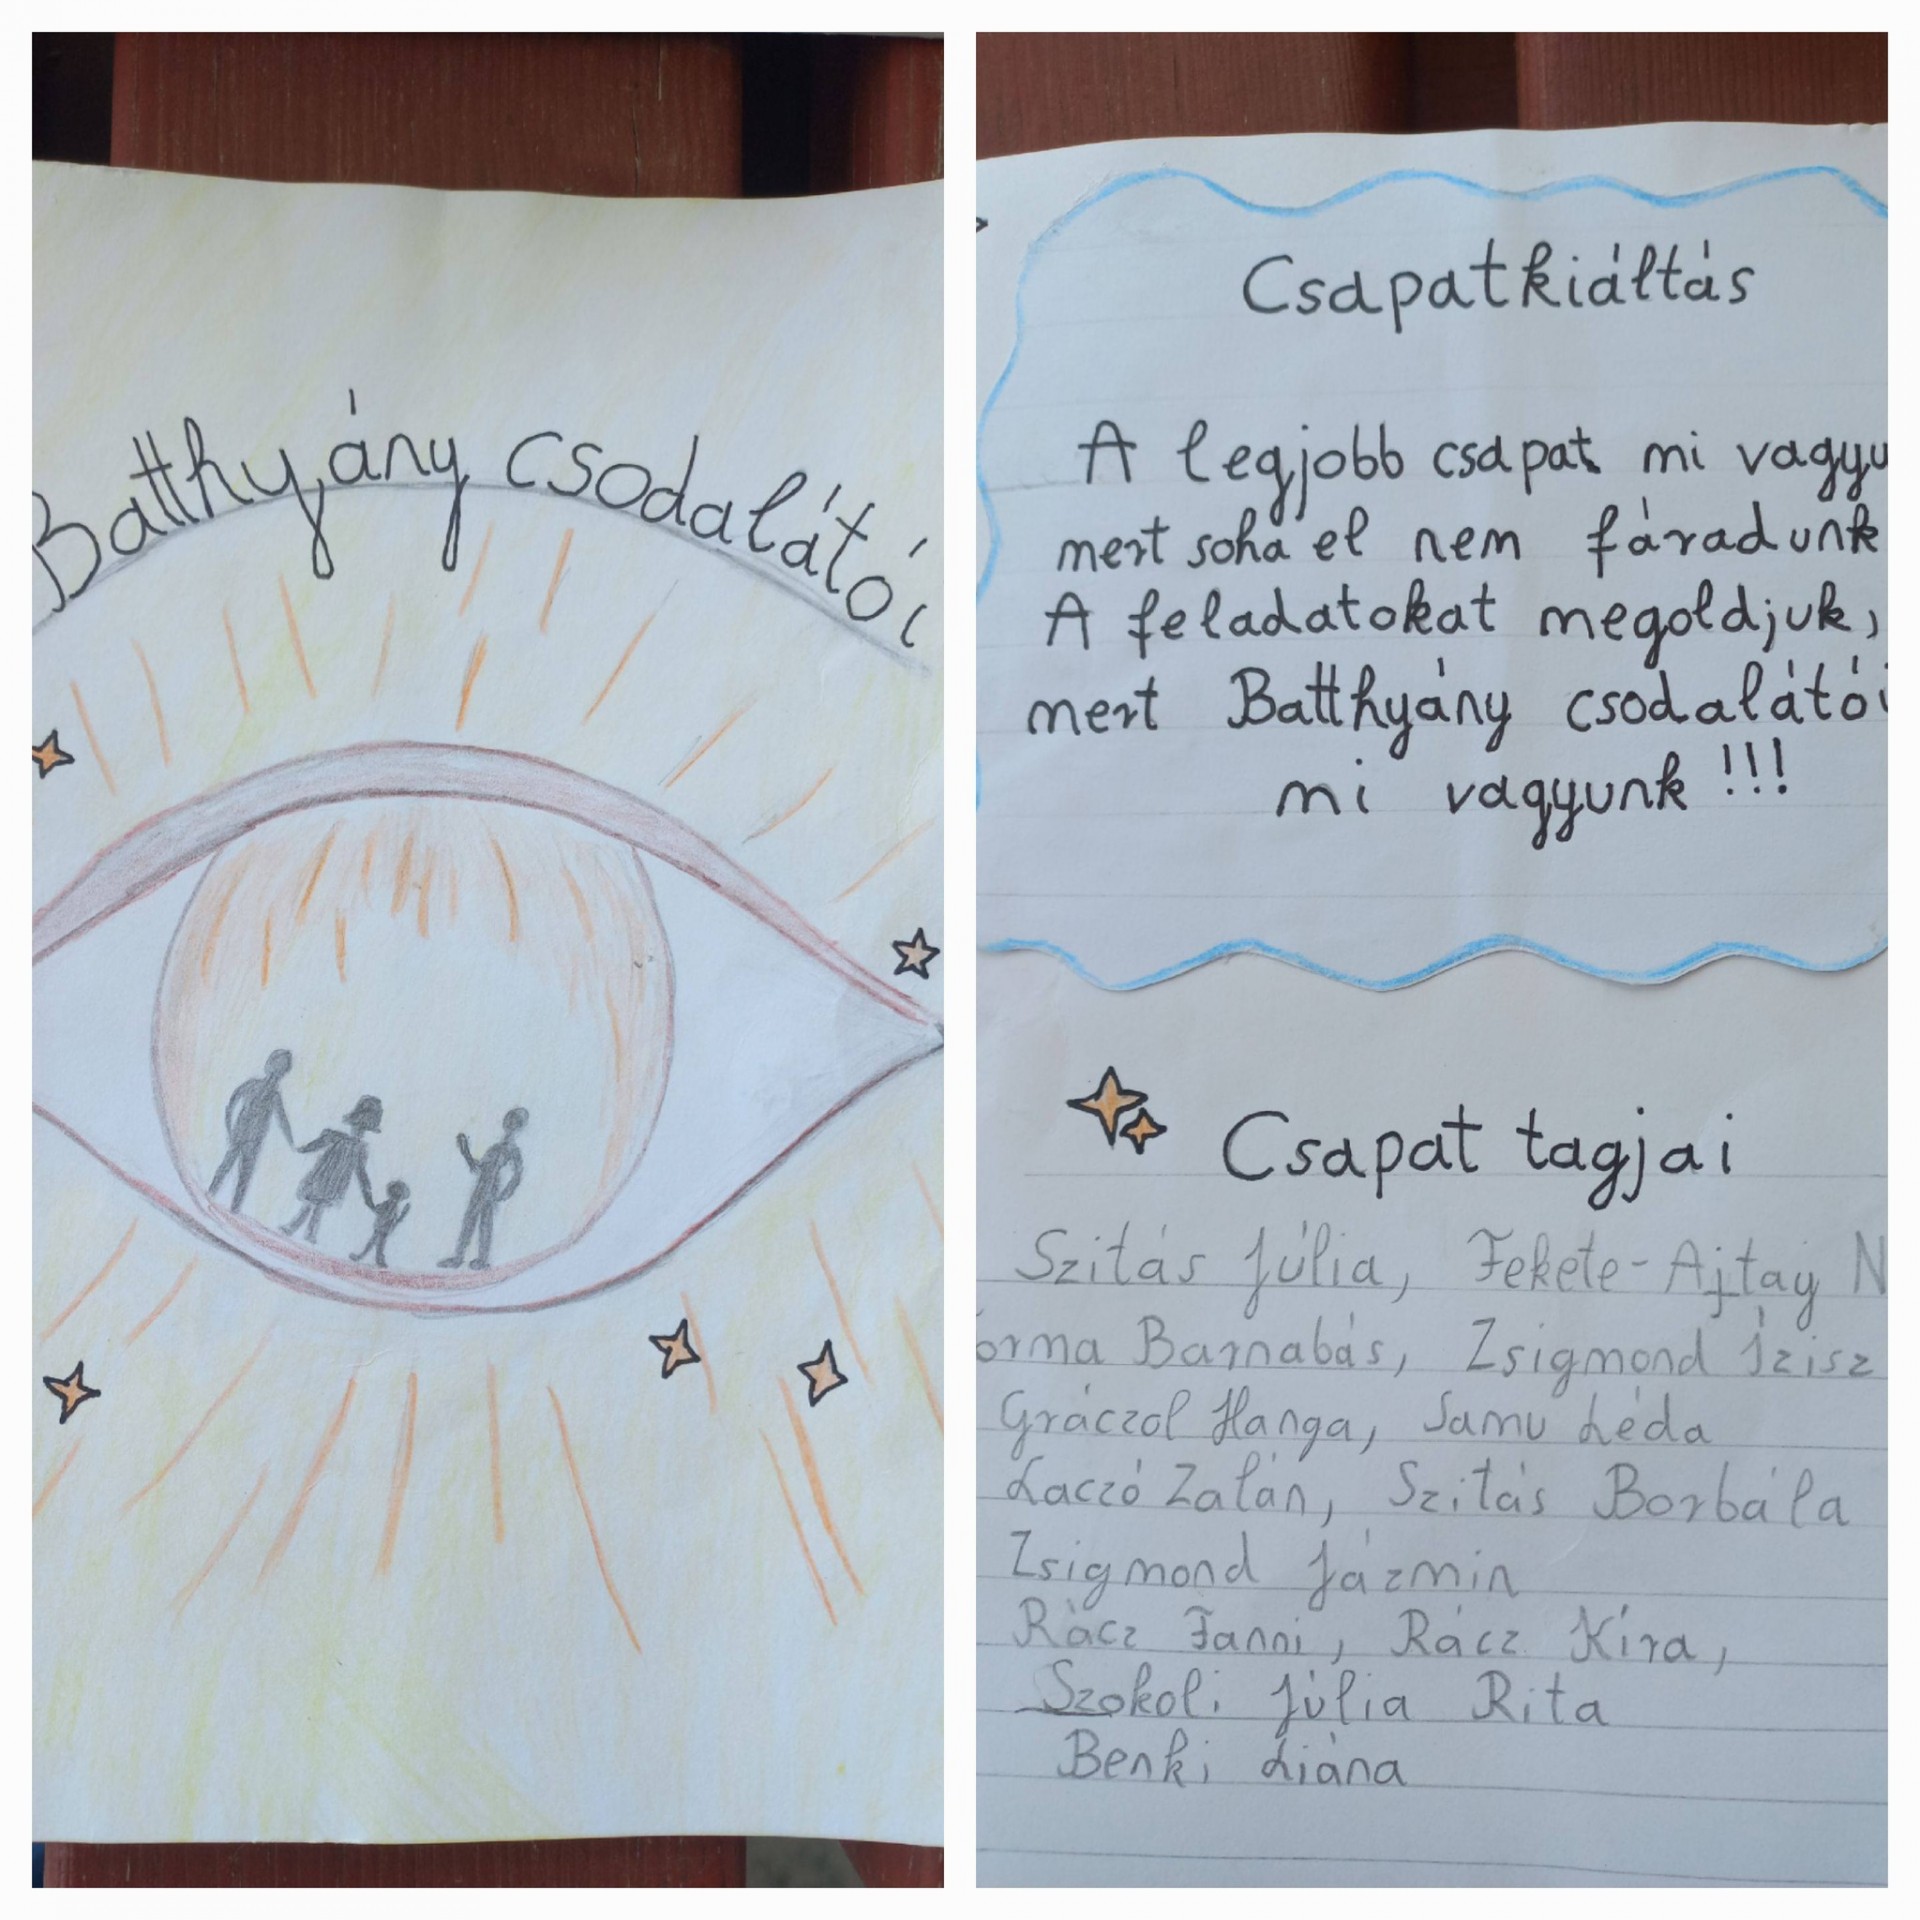 Batthyány csodalátói
Csapatkiáltás
A legjobb csapat mi vagyu
mert soha el nem fáradunk
A feladatokat megoldjuk,
mert Batthyány csodalátói
mi vagyunk!!!
Csapat tagjai
Szitás Júlia, Fekete-Ajtay N
orma Barnabás, Zsigmond Ízisz
Gráczol Hanga, Samu Léda
Laczó Zalán, Szitás Borbála
Zsigmond Jázmin
Rácz Fanni, Rácz Kíra,
Szokoli Júlia Rita
Benki Liána